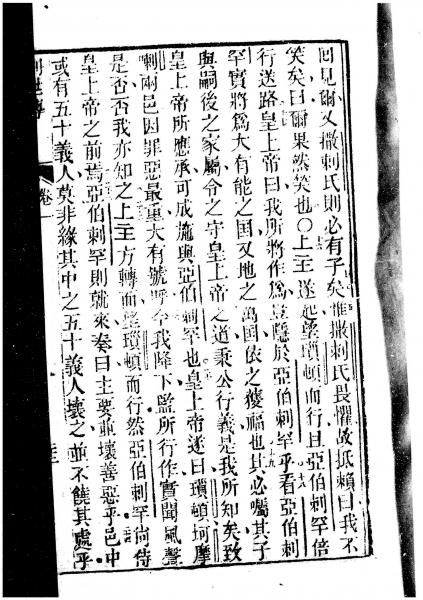 回見爾又撒剌氏則必有子矣惟撒剌氏畏懼故抵賴曰我不
笑矣曰爾果然笑也○上主遂起望瑣頓而行且亞伯剌罕倍
行送路皇上帝曰我所將作為豈隱於亞伯剌罕乎看亞伯剌
罕實將為大有能之国又地之萬国依之獲福也其必囑其子
與嗣後之家屬令之守皇上帝之道秉公行義是我所知矣致
皇上帝所應承可成施與亞伯剌罕也皇上帝遂曰瑣頓坷摩
喇兩邑因罪惡最重大有號呼今我降下監所行作實聞風聲
是否否我亦知之上主方轉而望瑣頓而行然亞伯剌罕尚侍
皇上帝之前焉亞伯剌罕則就來奏曰主要並壞善惡乎邑中
或有五十義人莫非緣其中之五十義人壞之並不饒其處乎
創世 卷一